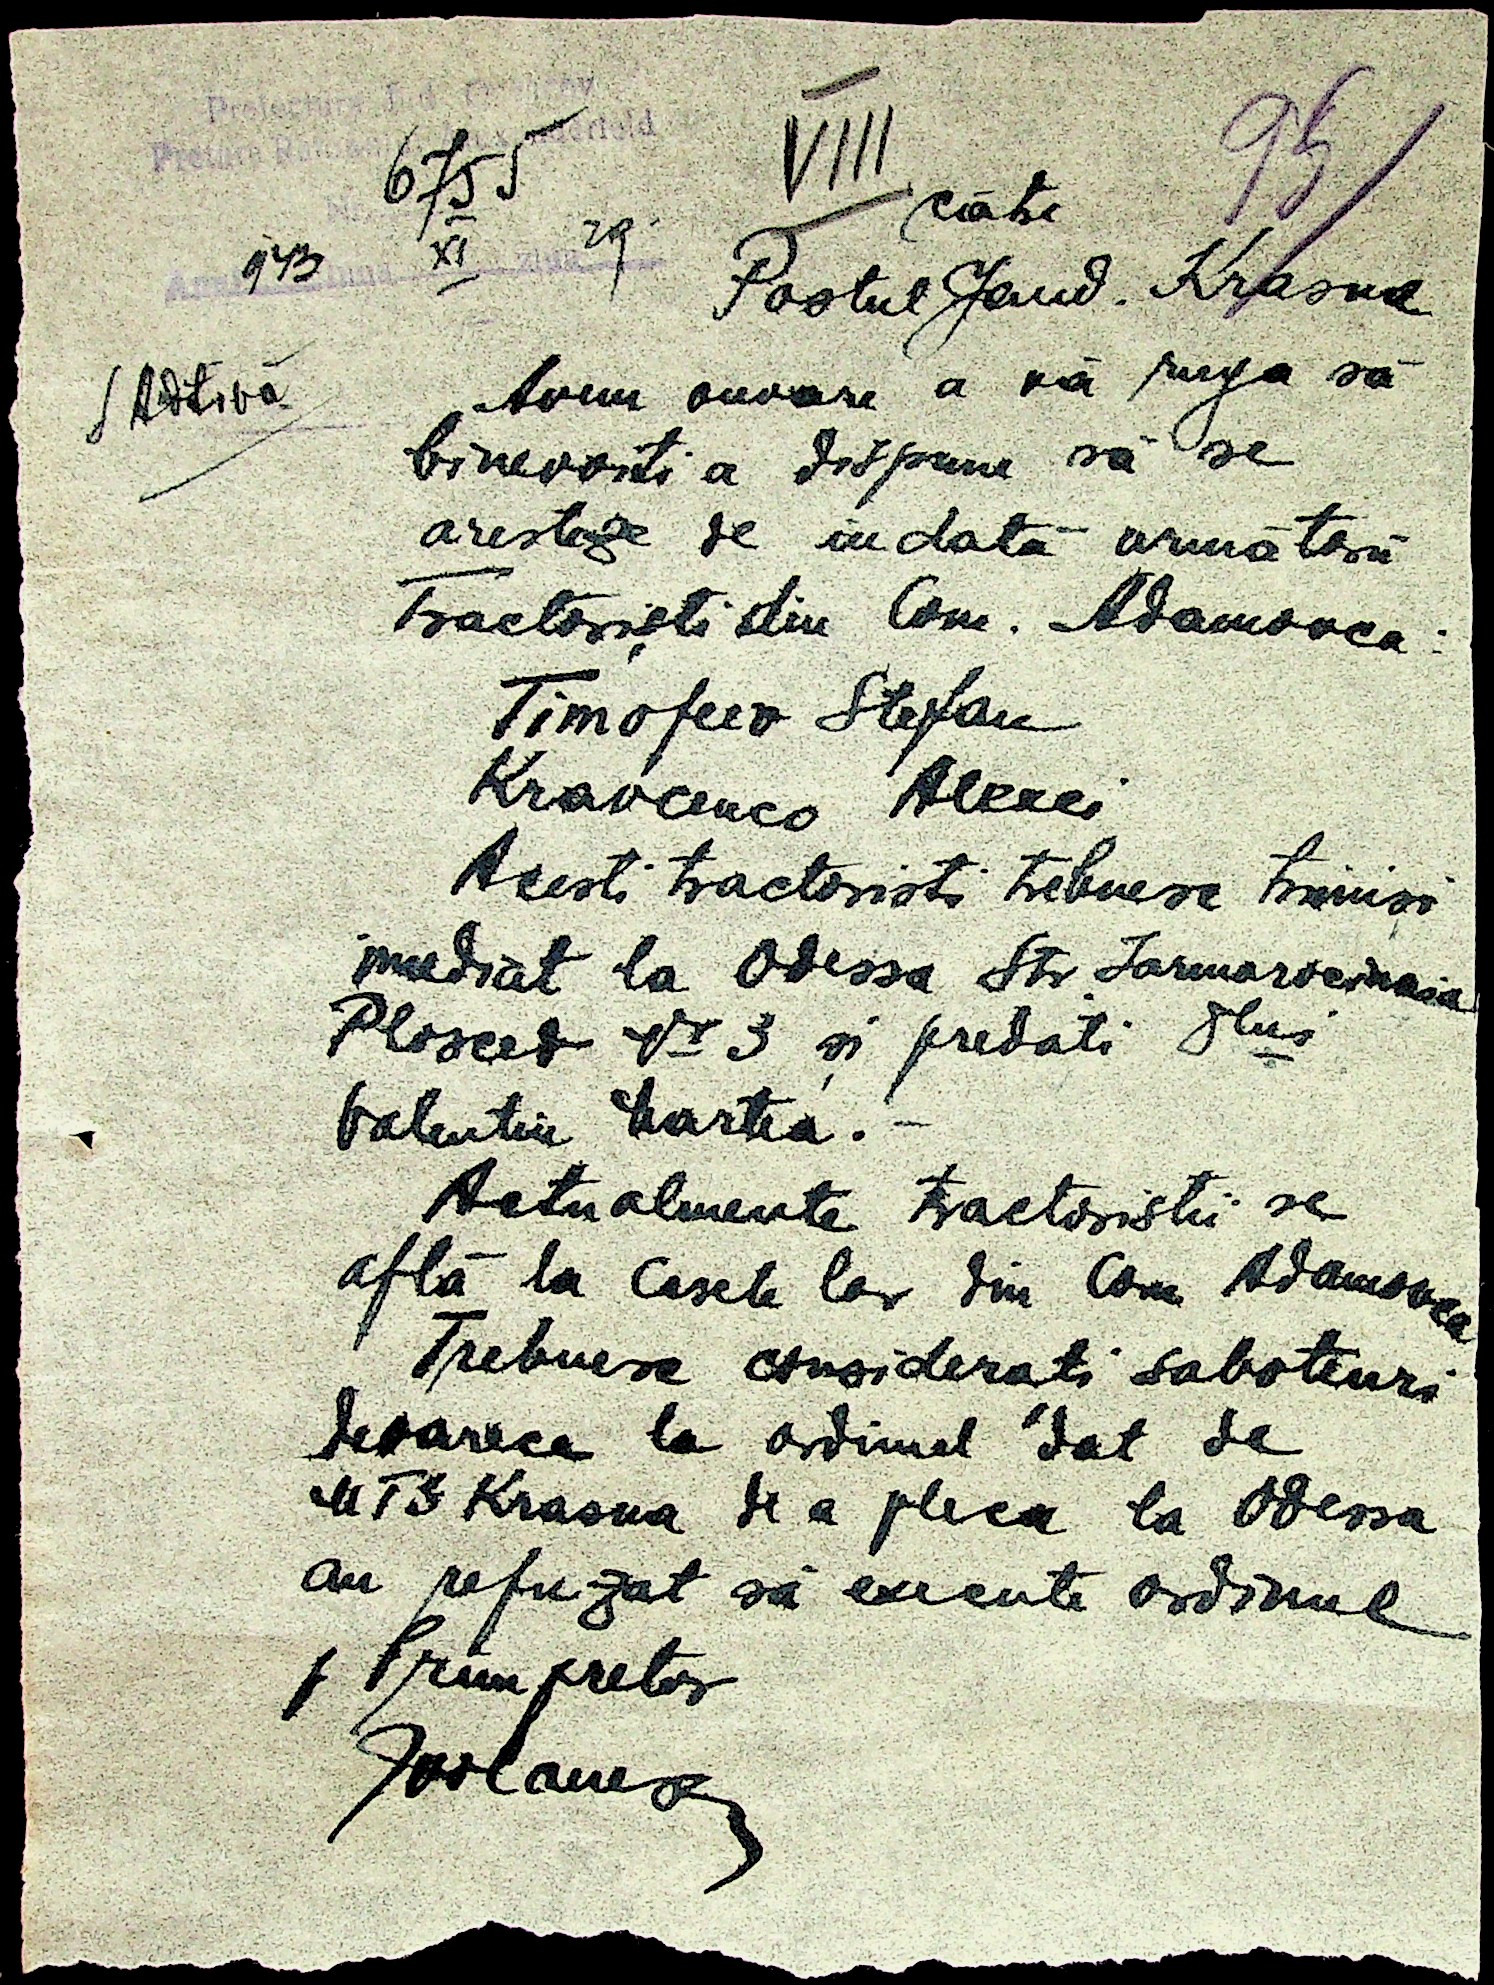 Prefectura Jud.
Pretura
6755
VIII
95
către
943 XI 29
Postul Jand. Krasna
Avem onoare a vă ruga să
binevoiti a dispune să se
aresteze de indată următorii
Tractoriști din Com. Adamovca:
Timofeev Stefan
Kravcenco Alexei
Acesti tractoristi trebuesc trimisi
imediat la Odessa Str. Iarmarocinaia
Nr 3 și predati Dlui
Valentin Martea. -
Actualmente tractoristii se
află la casele lor din Com Adamovca
Trebuesc considerați saboteuri
deoarece la ordinul dat de
MTS Krasna de a pleca la Odessa
au refuzat să execute ordinul
p Prim pretor